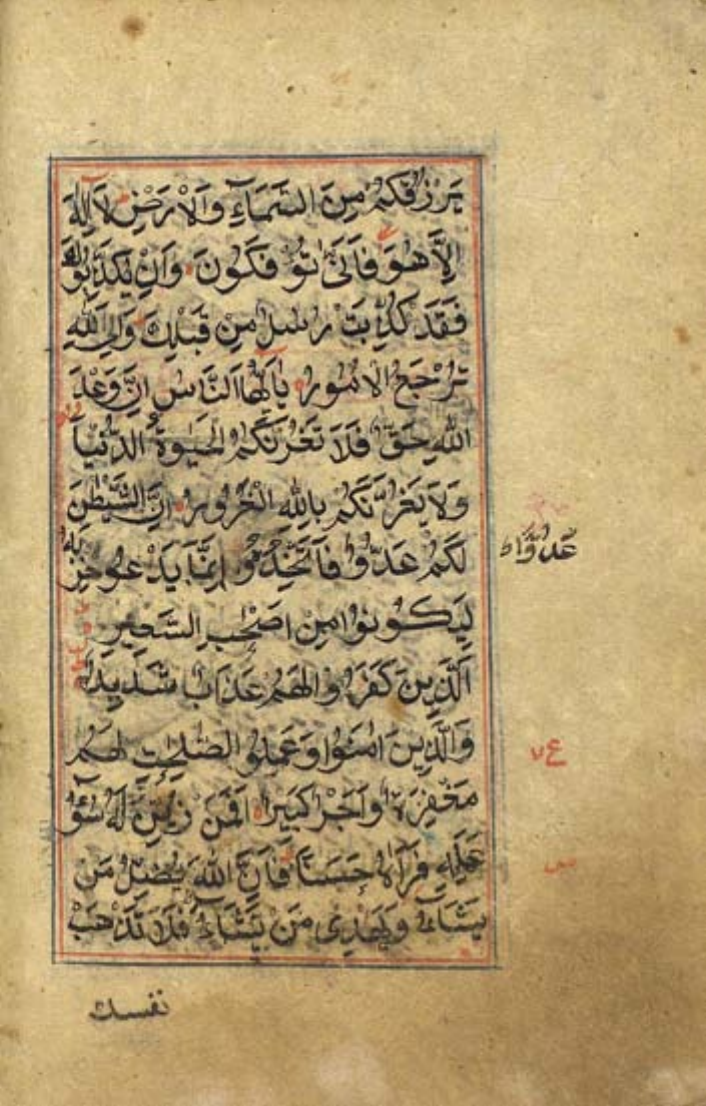 يَرْزُقُكُمْ مِنَ السَّمَاءِ وَالْاَرْضِ لَا اِلٰهَ
اِلَّا هُوَ فَاَنّٰى تُؤْفَكُونَ وَاِنْ يُكَذِّبُوكَ
فَقَدْ كُذِّبَتْ رُسُلٌ مِنْ قَبْلِكَ وَاِلَى اللّٰهِ
تُرْجَعُ الْاُمُورُ يٰاَيُّهَا النَّاسُ اِنَّ وَعْدَ
اللّٰهِ حَقٌّ فَلَا تَغُرَّنَّكُمُ الْحَيٰوةُ الدُّنْيَا
وَلَا يَغُرَّنَّكُمْ بِاللّٰهِ الْغَرُورُ اِنَّ الشَّيْطٰنَ
لَكُمْ عَدُوٌّ فَاتَّخِذُوهُ اِنَّمَا يَدْعُو حِزْبَهُ
عَدُوًّا ط
لِيَكُونُوا مِنْ اَصْحٰبِ السَّعِيرِ
اَلَّذِينَ كَفَرُوا لَهُمْ عَذَابٌ شَدِيدٌ
وَالَّذِينَ اٰمَنُوا وَعَمِلُوا الصّٰلِحٰتِ لَهُمْ
ع
مَغْفِرَةٌ وَاَجْرٌ كَبِيرٌ اَفَمَنْ زُيِّنَ لَهُ سُوْءُ
عَمَلِهِ فَرَاٰهُ حَسَنًا فَاِنَّ اللّٰهَ يُضِلُّ مَنْ
يَشَاءُ وَيَهْدِى مَنْ يَشَاءُ فَلَا تَذْهَبْ
نفسك